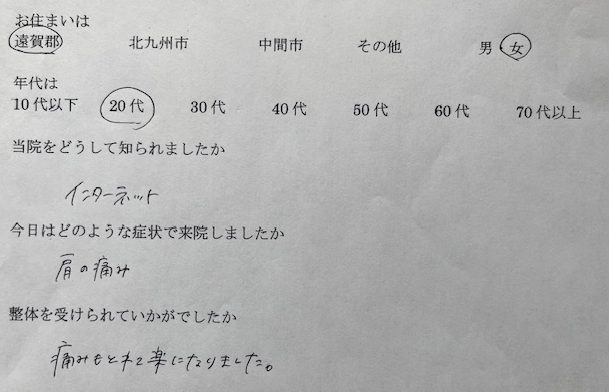 お住まいは
遠賀郡 北九州市 中間市 その他 男・女
年代は
10代以下 20代 30代 40代 50代 60代 70代以上
当院をどうして知られましたか
インターネット
今日はどのような症状で来院しましたか
肩の痛み
整体を受けられていかがでしたか
痛みもとれて楽になりました。